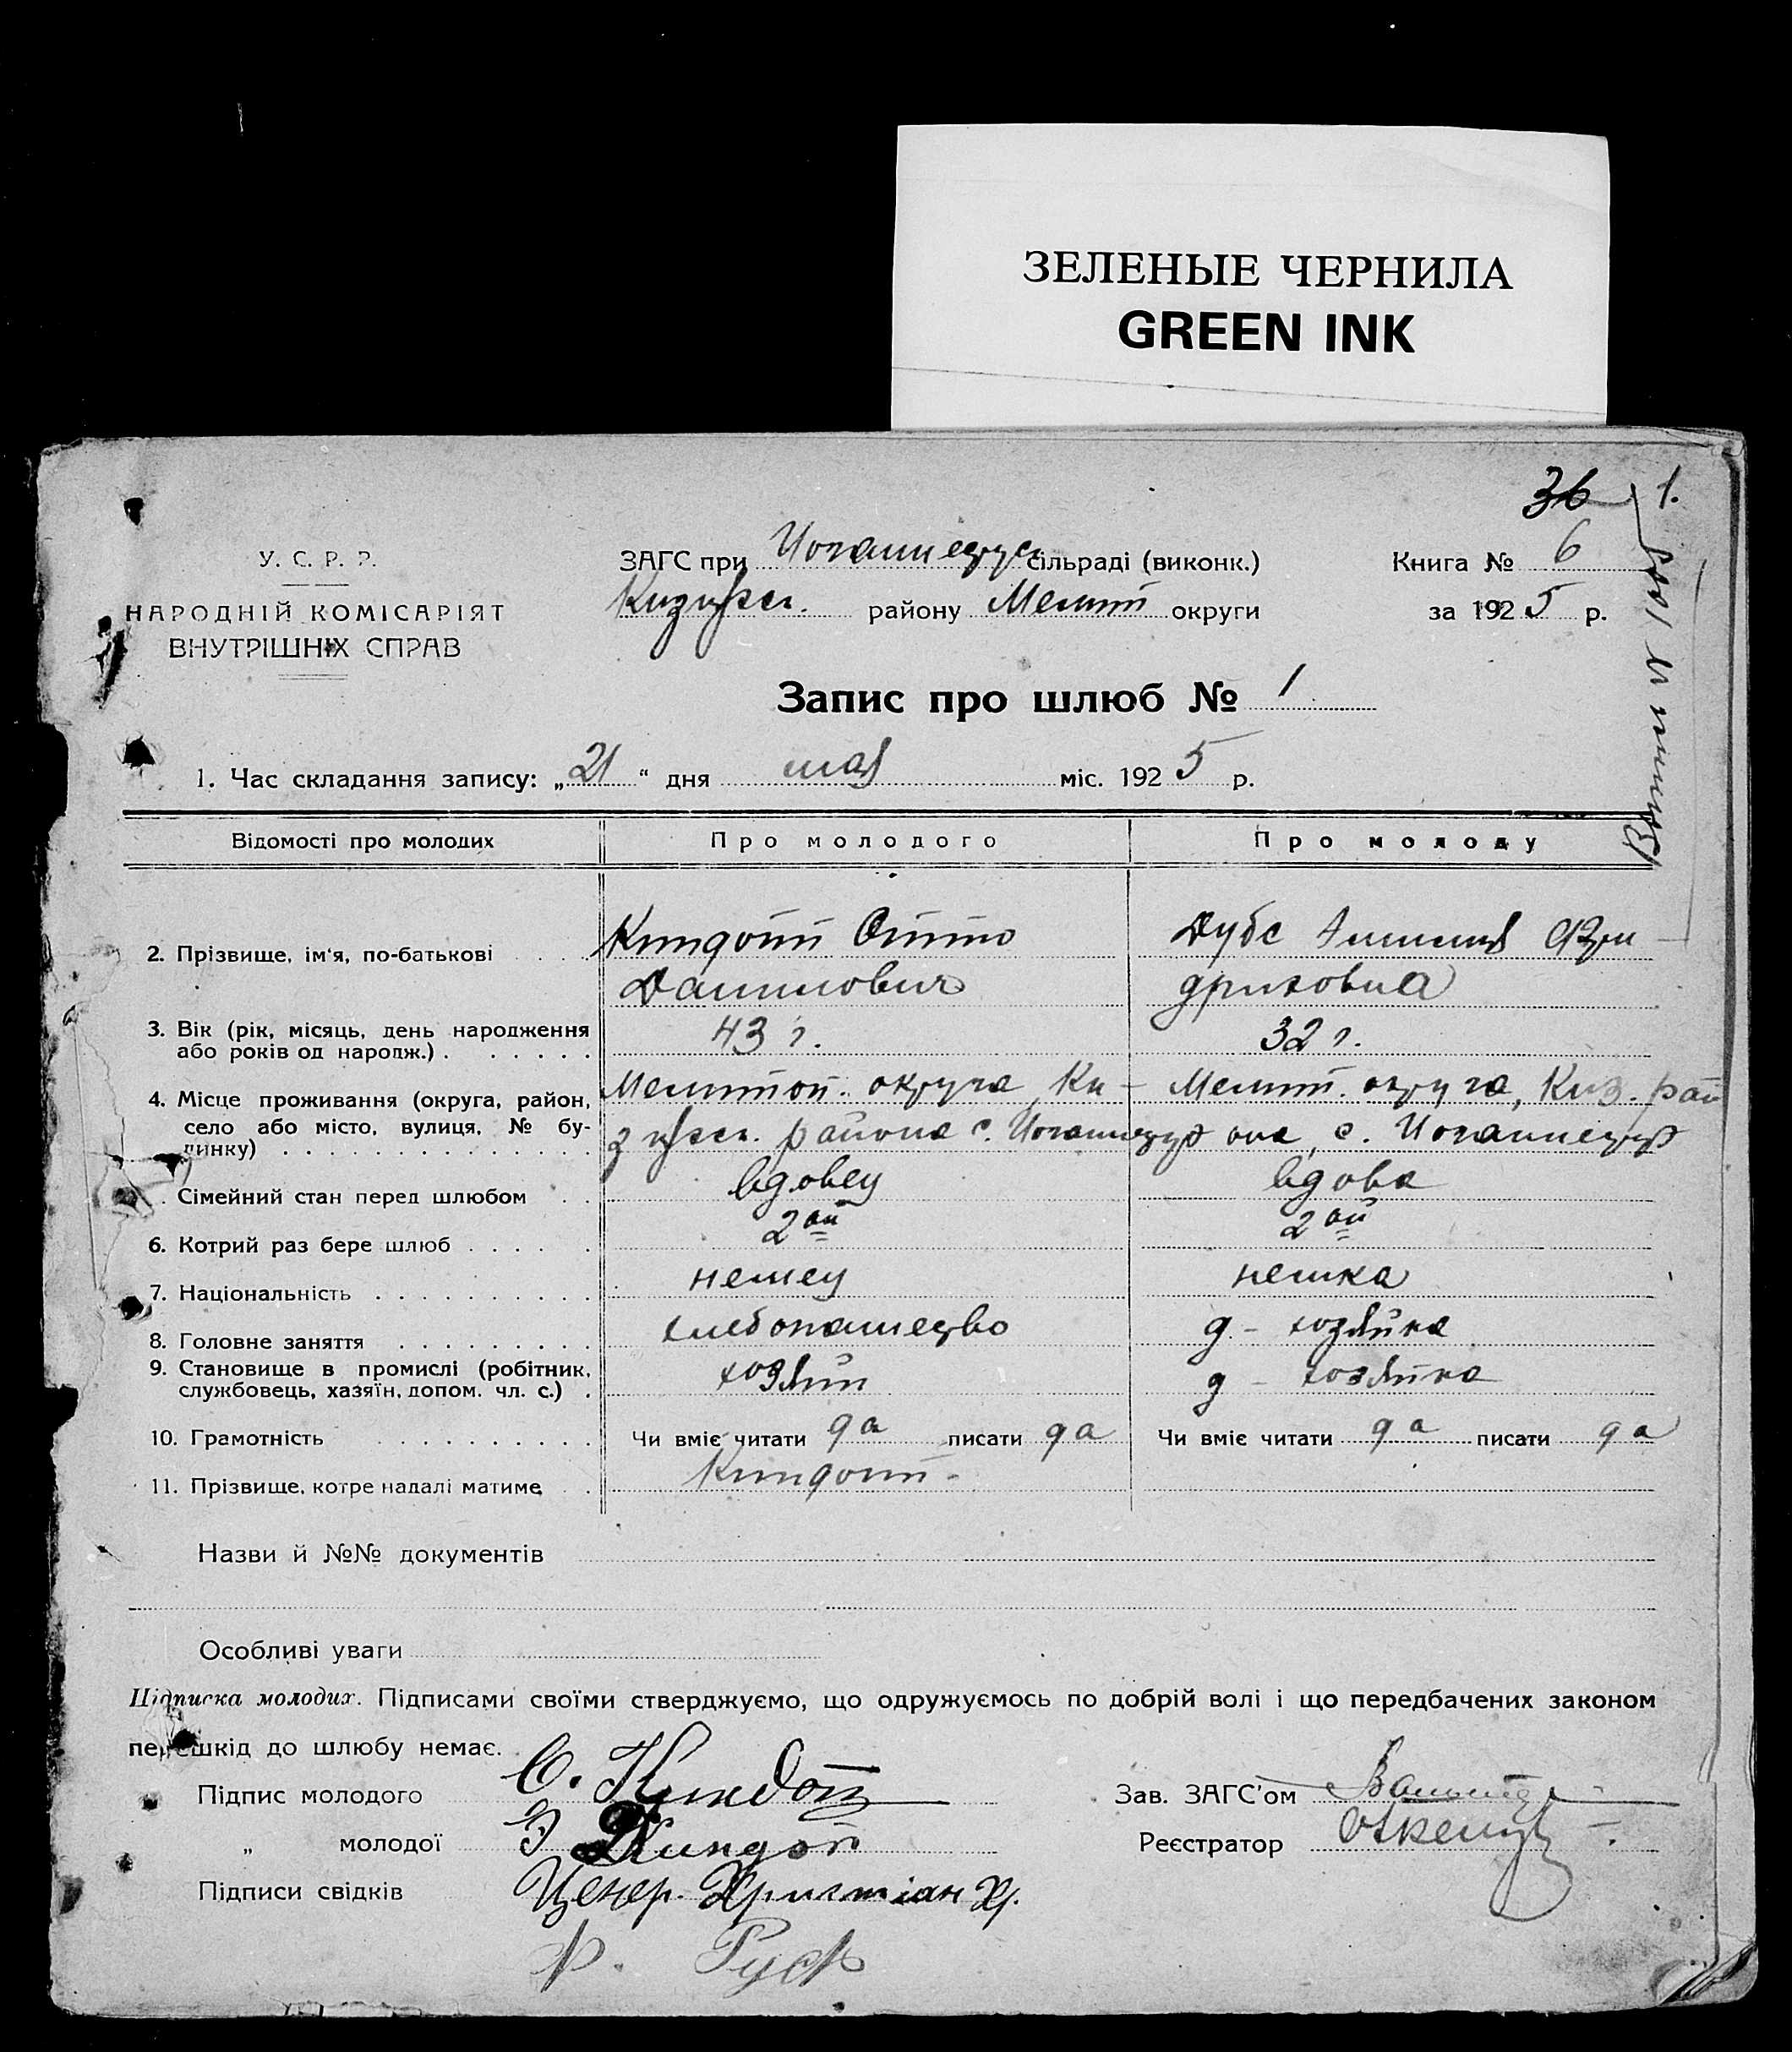 ЗЕЛЕНЫЕ ЧЕРНИЛА
GREEN INK
36 1.
У. С. Р. Р.
НАРОДНІЙ КОМІСАРІЯТ
ВНУТРІШНІХ СПРАВ
ЗАГС при сільраді (виконк.)
району Мелит округи
Книга № 6
за 1925 р.
Запис про шлюб № 1
1. Час складання запису: „21“ дня мая міс. 1925 р.
Відомості про молодих Про молодого Про молоду
2. Прізвище, ім'я, по-батькові Киндотт Отто Дубс
Даниловичъ
3. Вік (рік, місяць, день народження
або років од народж.) 43 г. 32 г.
4. Місце проживання (округа, район, Мелитоп. округа, Ки- Мелит. округа, Киз. рай
село або місто, вулиця, № бу- района с. она, с.
динку)
Сімейний стан перед шлюбом вдовец вдова
6. Котрий раз бере шлюб 2ой 2ой
7. Національність немец немка
8. Головне заняття хлебопашество д-хозяйка
9. Становище в промислі (робітник,
службовець, хазяїн, допом. чл. с.) хозяин д-хозяйка
10. Грамотність Чи вміє читати да писати да Чи вміє читати да писати да
11. Прізвище, котре надалі матиме Киндотт
Назви й №№ документів
Особливі уваги
Підписка молодих. Підписами своїми стверджуємо, що одружуємось по добрій волі і що передбачених законом
перешкід до шлюбу немає.
Підпис молодого О. Киндот
„ молодої Э Киндот
Підписи свідків Ценер. Христіан Хр.
Зав. ЗАГС'ом
Реєстратор